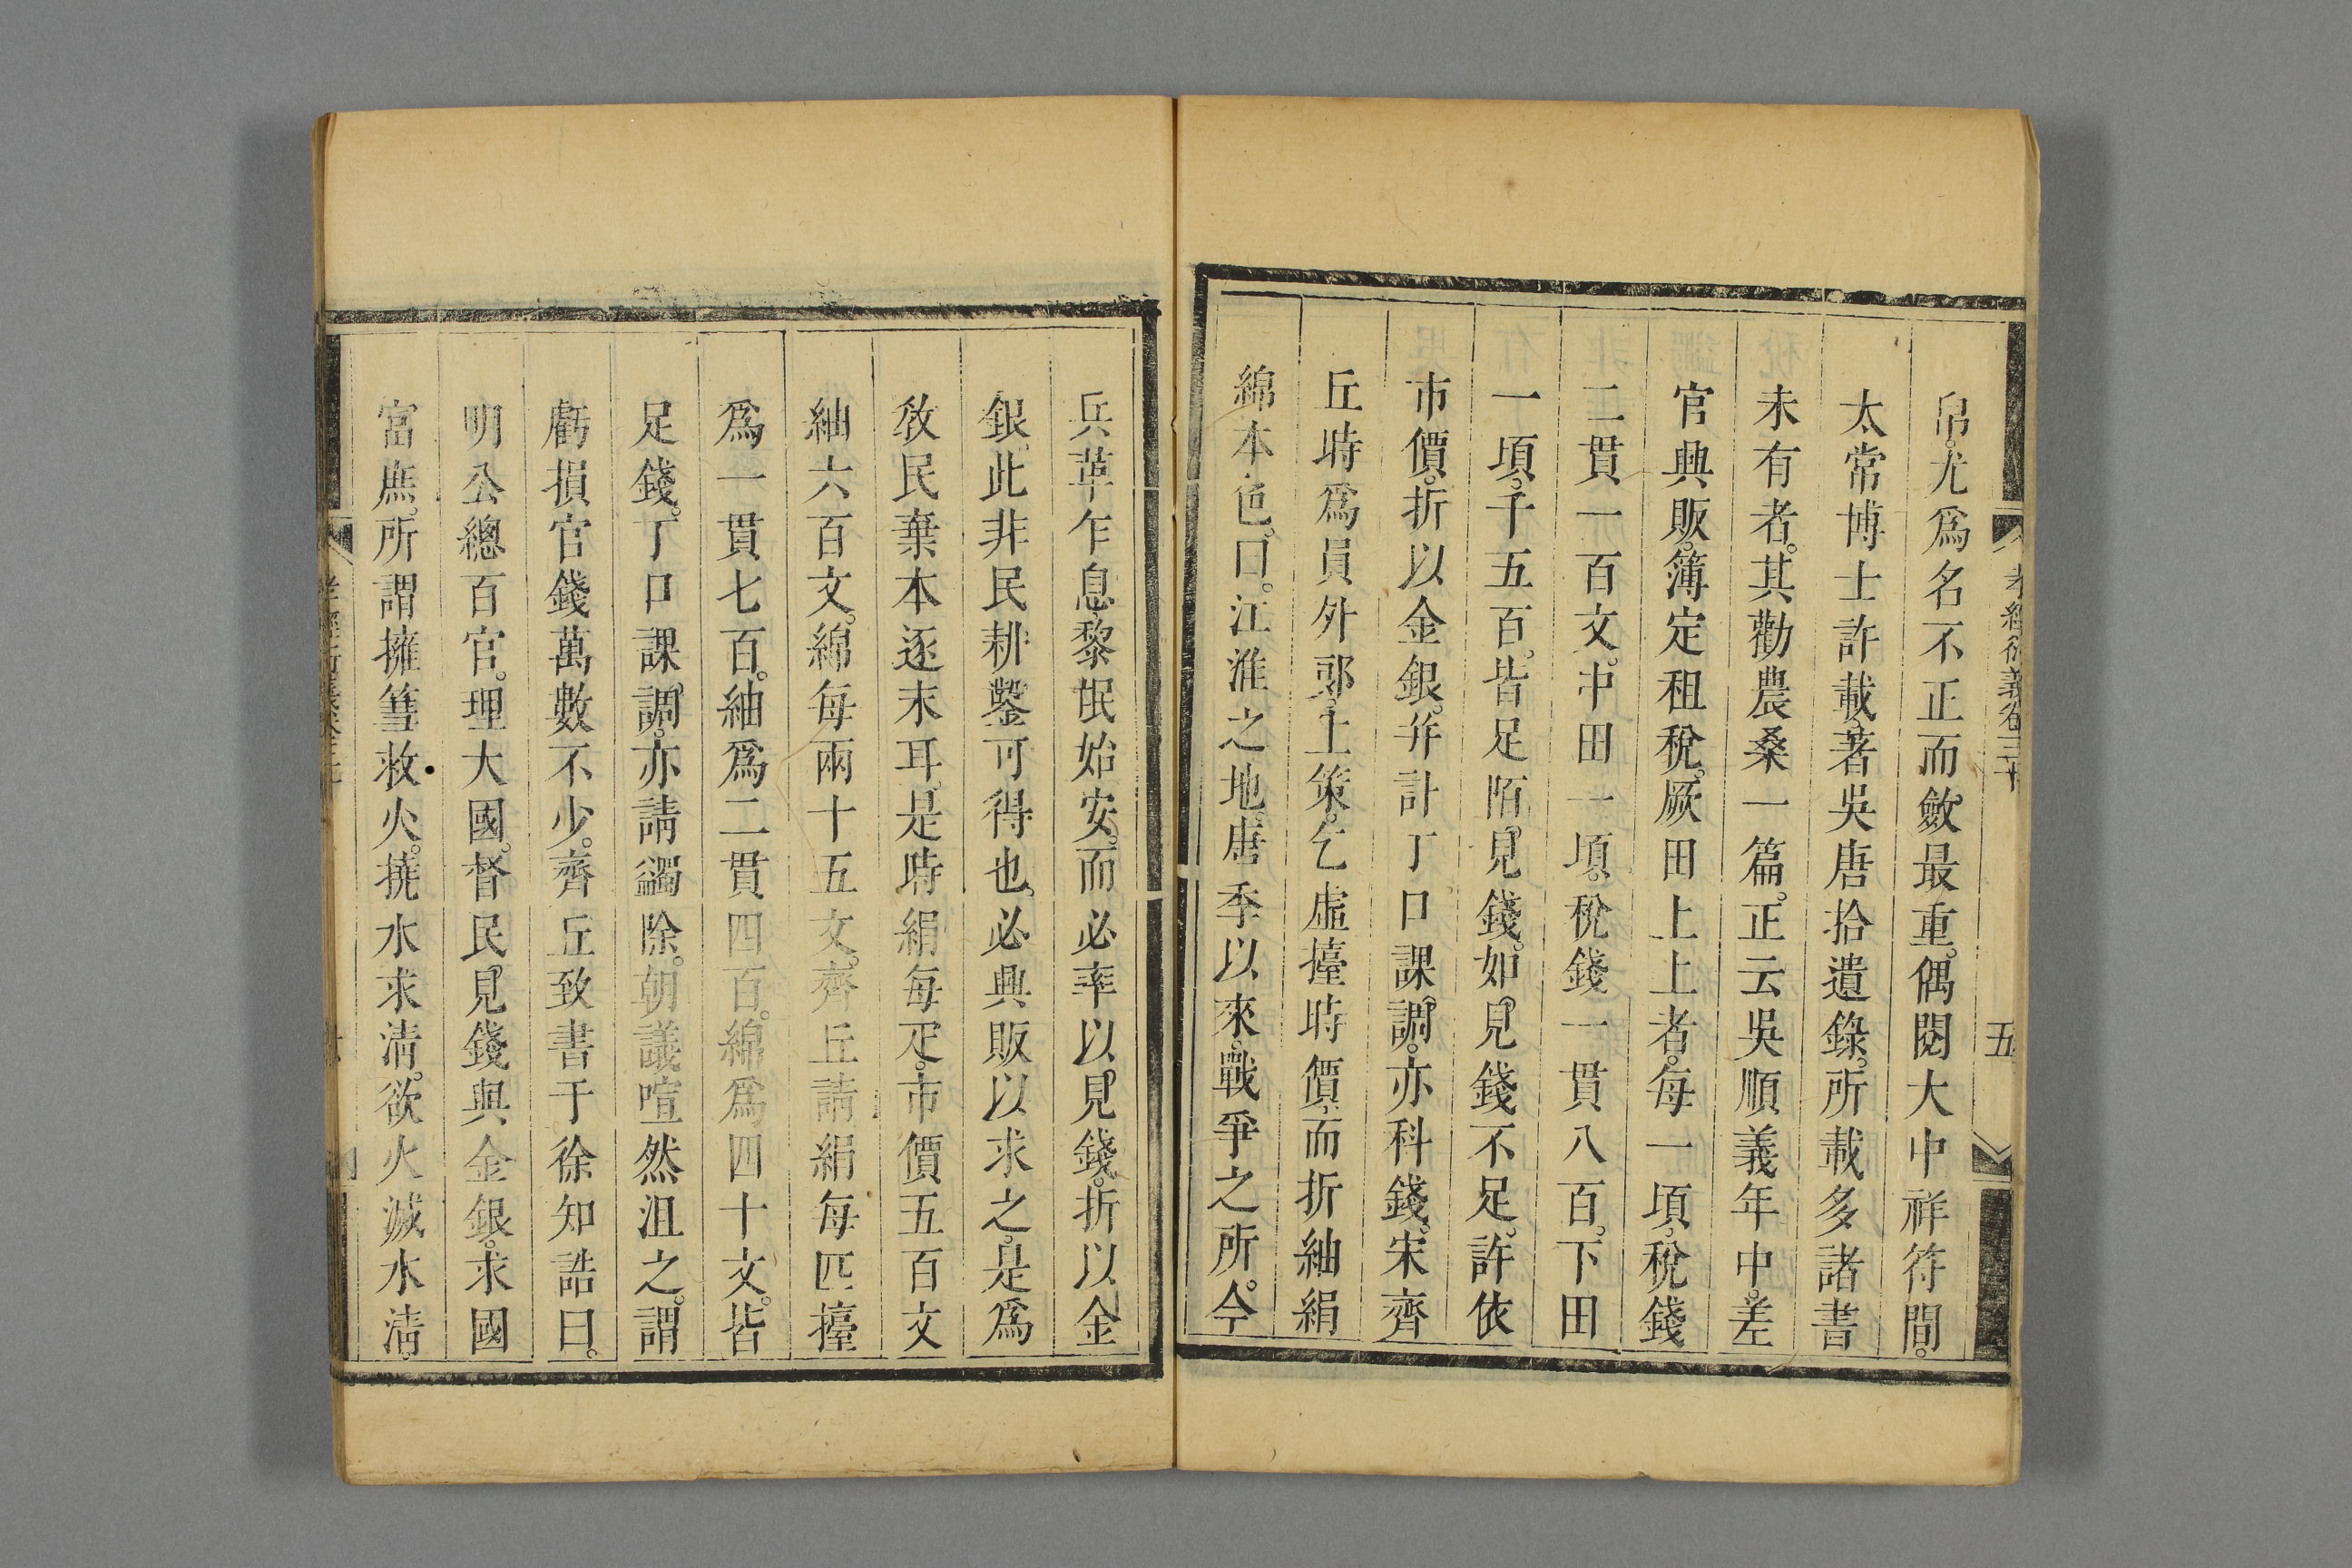 孝經衍義卷三十
五
帛尤爲名不正而斂最重偶閱大中祥符間
太常博士許載著吳唐拾遺錄所載多諸書
未有者其勸農桑一篇正云吳順義年中差
官興販簿定租稅厥田上上者每一頃稅錢
二貫一百文中田一頃稅錢一貫八百下田
一頃千五百皆足陌見錢如見錢不足許依
市價折以金銀并計丁口課調亦科錢宋齊
丘時爲員外郎上策乞虛擡時價而折紬絹
綿本色曰江淮之地唐季以來戰爭之所今
兵革乍息黎氓始安而必率以見錢折以金
銀此非民耕鑿可得也必興販以求之是爲
敎民棄本逐末耳是時絹每疋市價五百文
紬六百文綿每兩十五文齊丘請絹每匹擡
爲一貫七百紬爲二貫四百綿爲四十文皆
足錢丁口課調亦請蠲除朝議喧然沮之謂
虧損官錢萬數不少齊丘致書于徐知誥曰
明公總百官理大國督民見錢與金銀求國
富庶所謂擁篲救火撓水求清欲火滅水清